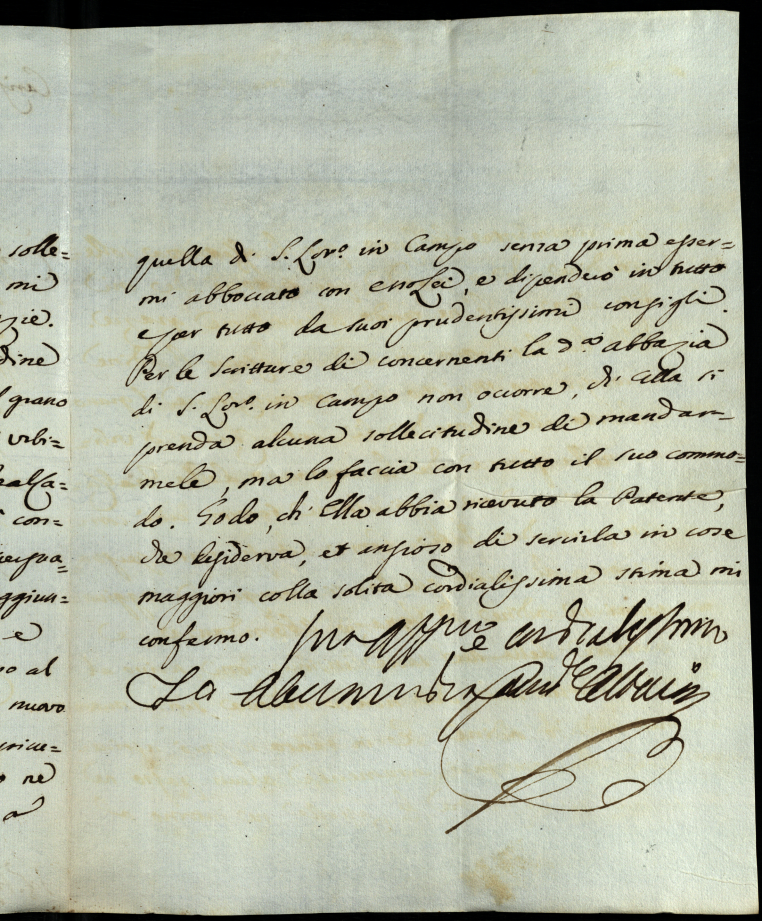 solle=
mi
zie.
dine
grano
urbi=
con=
ggiun=
e
no al
nuovo
ne
a
quella di S. Lor.º in Campo senza prima esser=
mi abboccato con esso Lei, e dipenderò in tutto
e per tutto da suoi prudentissimi consigli.
Per le Scritture di concernenti la d.ª abbazia
di S. Lor.º in Campo non occorre, ch'Ella si
prenda alcuna sollecitudine di mandar=
mele, ma lo faccia con tutto il suo commo=
do. Godo, ch'Ella abbia ricevuto la Patente,
che desiderava, et ansioso di servirla in cose
maggiori colla solita cordialissima stima mi
confermo.